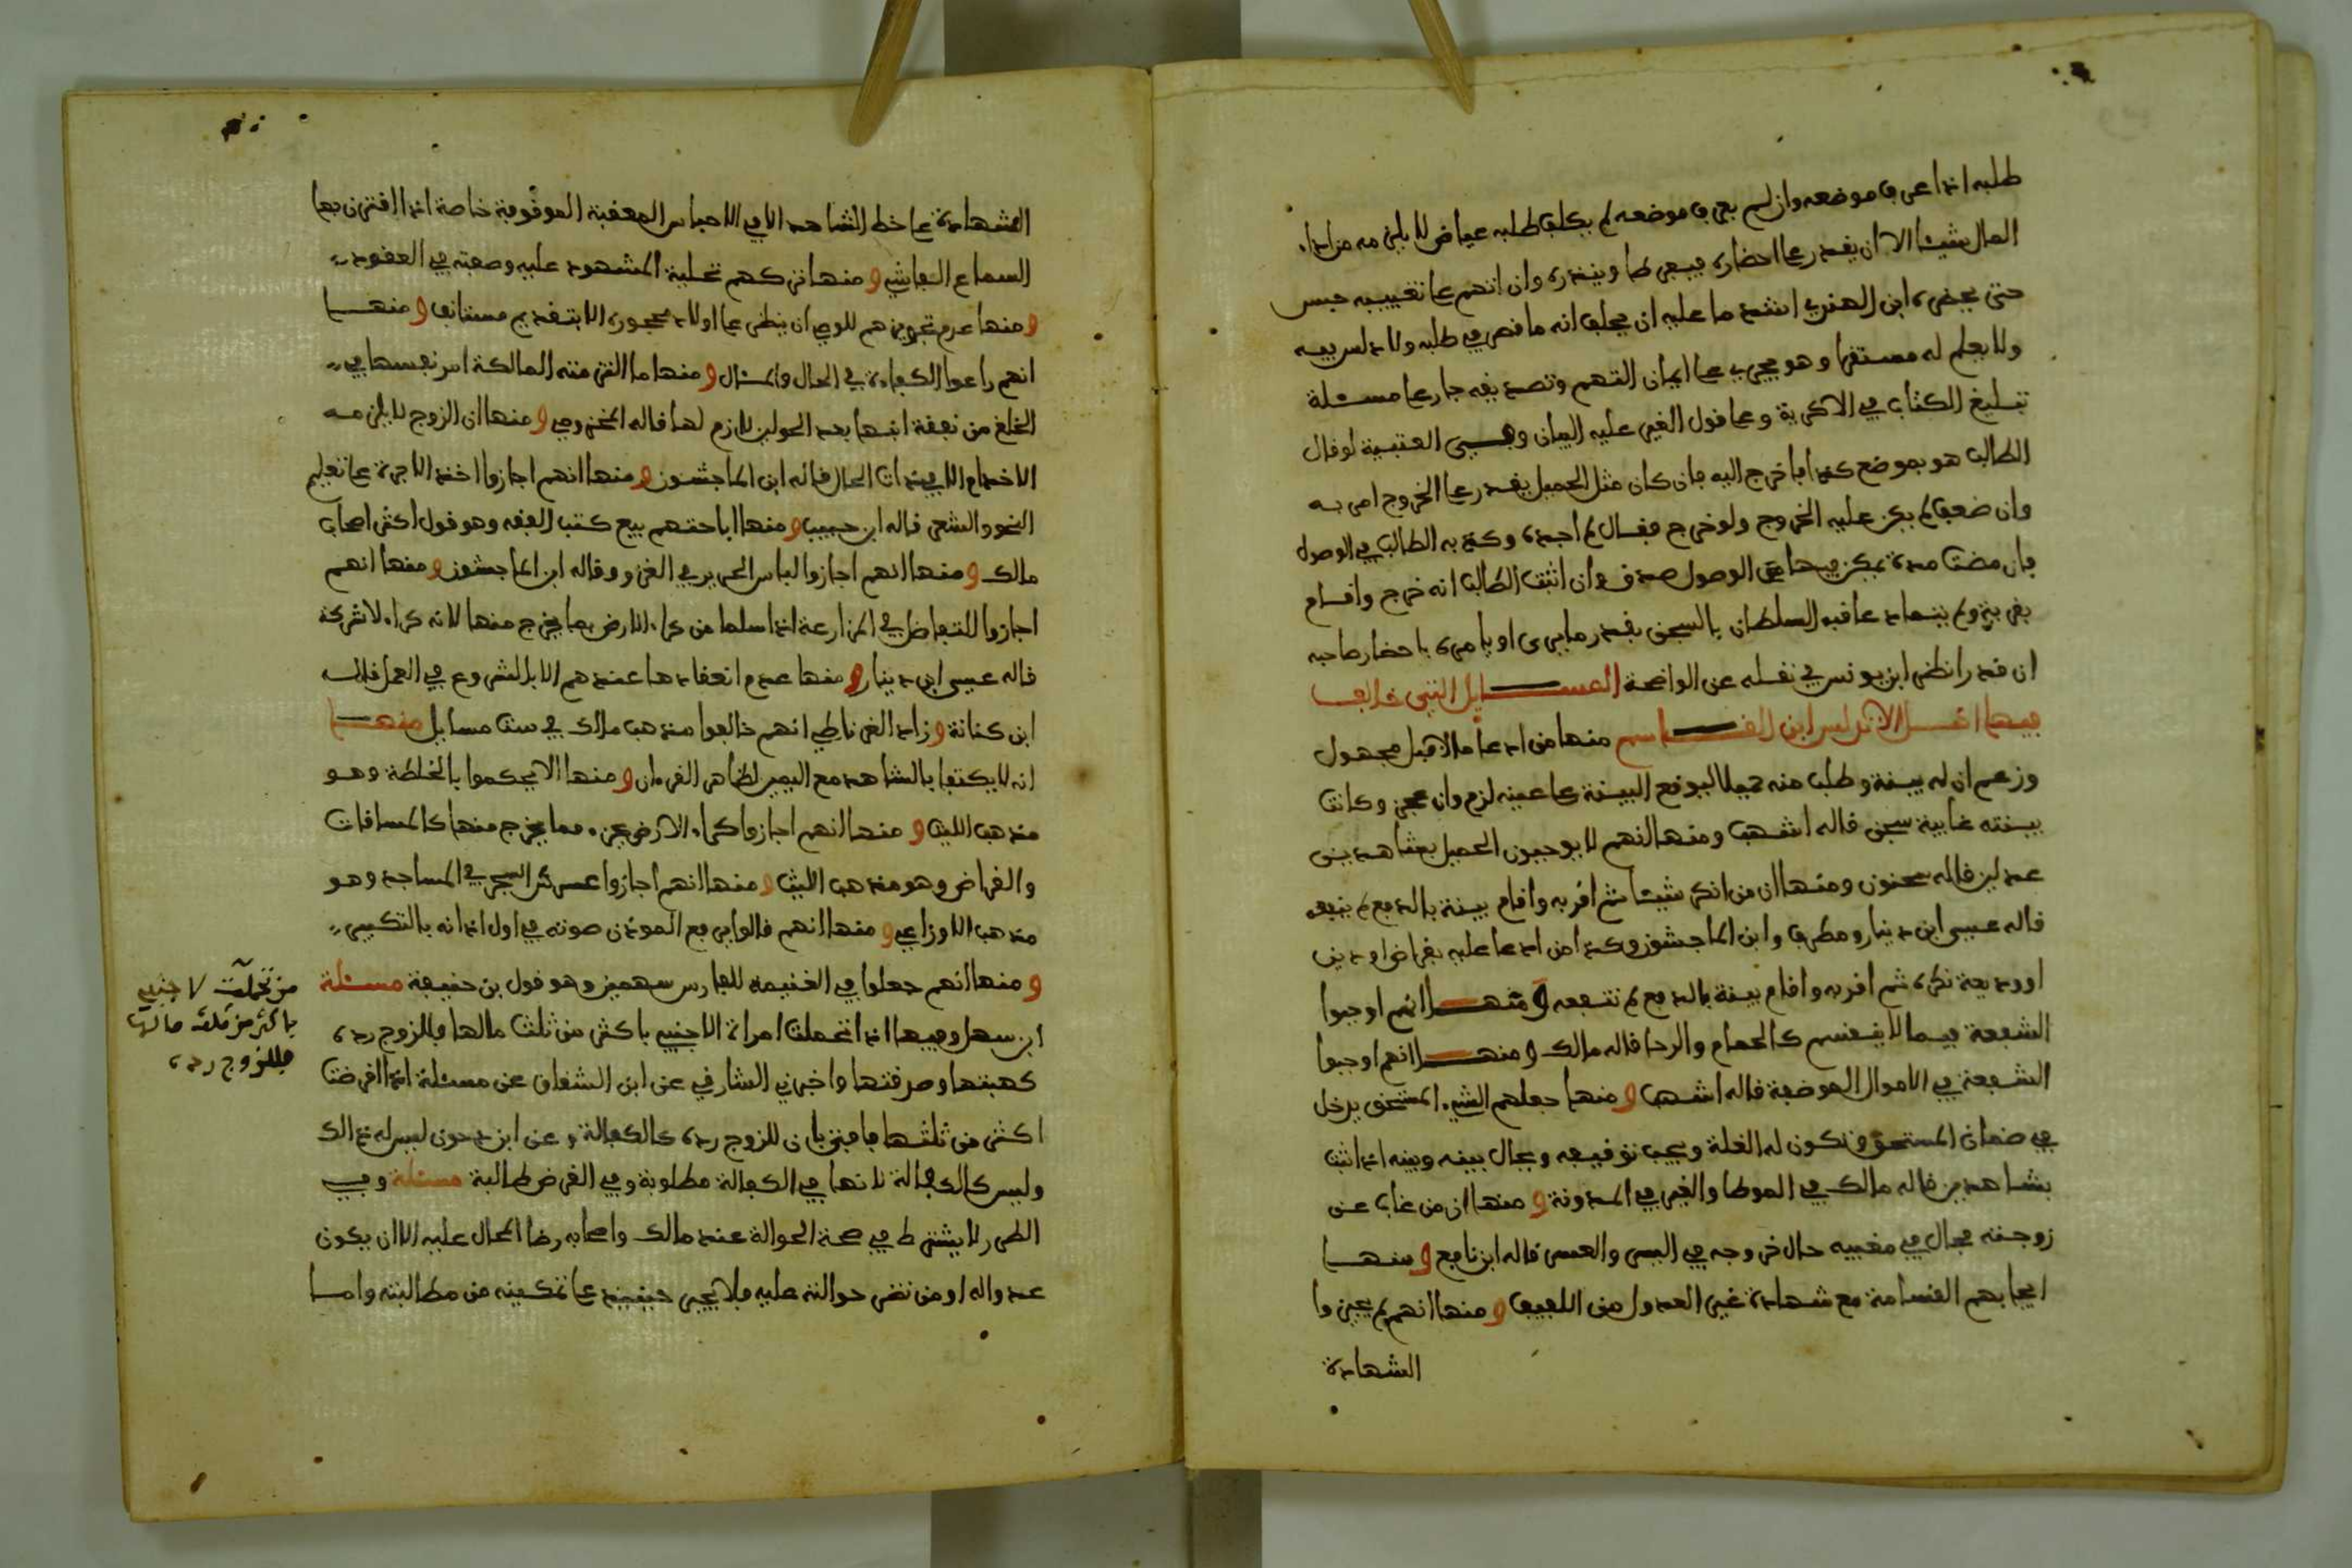 طلبه اذا عرف موضعه وان لم يعرف موضعه لم يكلف طلبه عياض لا يلزمه من اداء
المال شيئا الا ان يقدر على احضاره فيفرط او ينذره وان اتهم على تغييبه حبس
حتى يحضره ابن الهندي اشد ما عليه ان يحلف انه ما قصر في طلبه ولا دلس فيه
ولا يعلم له مستقرا وهو يجري على ايمان التهم وتصديقه جار على مسئلة
تبليغ الكتاب في الاكرية وعلى قول الغير عليه البيان وفي العتبية لو قال
الطالب هو بموضع كذا فاخرج اليه فان كان مثل الحميل يقدر على الخروج امر به
وان ضعف لم يكن عليه الخروج ولو خرج فقال لم اجده وكذبه الطالب في الوصول
فان مضت مدة يمكن فيها الوصول صدق وان اثبت الطالب انه خرج واقام
بقرية ولم يتماد عاقبه السلطان بالسجن بقدر ما يرى او يامره باحضار صاحبه
ان قدر انظر ابن يونس في نقله عن الواضحة المسايل التي خالف
فيها اهل الاندلس ابن القاسم منها من ادعا مالا قبل مجهول
وزعم ان له بينة وطلب منه حميلا ليوقع البينة على عينه لزم وان عجز وكانت
بينته غايبة سجن قاله اشهب ومنها انهم لا يوجبون الحميل بشاهدين
عدلين قاله سحنون ومنها ان من انكر شيئا ثم اقر به واقام بينة بالدفع لم ينفعه
قاله عيسى ابن دينار ومطرف وابن الماجشون وكذا من ادعا عليه بقراض او دين
او وديعة نكره ثم اقر به واقام بينة بالدفع لم تنفعه ومنها انهم اوجبوا
الشفعة فيما لا ينقسم كالحمام والرحا قاله مالك ومنها انهم اوجبوا
الشفعة في الاموال الموظفة قاله اشهب ومنها جعلهم الشيء المستحق يدخل
في ضمان المستحق وتكون له الغلة ويجب توقيفه ويحال بينه وبينه اذا ثبت
بشاهدين قاله مالك في الموطا والغير في المدونة ومنها ان من غاب عن
زوجته فحال في مغيبه حال خروجه في اليسر والعسر قاله ابن نافع ومنها
ايجابهم القسامة مع شهادة غير العدول من اللفيف ومنها انهم لم يجيزوا
الشهادة
الشهادة على خط الشاهد الا في الاحباس المعقبة الموقوفة خاصة اذا اقترن بها
السماع الفاشي ومنها تركهم تحلية المشهود عليه وصفته في العقود
ومنها عدم تجويزهم للوصي ان ينظر على اولاد محجوره الا بتقديم مستانف ومنها
انهم راعوا الكفاءة في الحال والمال ومنها ما التزمته المالكة امر نفسها في
الخلع من نفقة ابنها بعد الحولين لازم لها قاله المخزومي ومنها ان الزوج لا يلزمه
الاخدام الا في ذات الحال قاله ابن الماجشون ومنها انهم اجازوا اخذ الاجرة على تعليم
النحو والشعر قاله ابن حبيب ومنها اباحتهم بيع كتب الفقه وهو قول اكثر اصحاب
مالك ومنها انهم اجازوا لباس الحرير في الغزو وقاله ابن الماجشون ومنها انهم
اجازوا التفاضل في المزارعة اذا سلما من كراء الارض بما يخرج منها لانه كراء لا شركة
قاله عيسى ابن دينار ومنها عدم انعقادها عندهم الا بالشروع في العمل قاله
ابن كنانة وزاد الغرناطي انهم خالفوا مذهب مالك في ست مسايل منها
انه لا يكتفا بالشاهد مع اليمين لظاهر القرءان ومنها الا يحكموا بالخلطة وهو
مذهب الليث ومنها انهم اجازوا كراء الارض بجزء مما يخرج منها كالمساقات
والقراض وهو مذهب الليث ومنها انهم اجازوا غرس الشجر في المساجد وهو
مذهب الاوزاعي ومنها انهم قالوا يرفع المؤذن صوته في اول اذانه بالتكبير
ومنها انهم جعلوا في الغنيمة للفارس سهمين وهو قول بن حنيفة مسئلة
ابن سهل وفيها اذا تحملت امراة لاجنبي باكثر من ثلث مالها فللزوج رده
كهبتها وصدقتها واخبرني الشارفي عن ابن الشقاق عن مسئلة اذا اقرضت
اكثر من ثلثها فافتى بان للزوج رده كالكفالة وعن ابن دحون ليس له ذالك
وليس كالكفالة لانها في الكفالة مطلوبة وفي القرض طالبة مسئلة وفي
الطرر لا يشترط في صحة الحوالة عند مالك واصحابه رضا المحال عليه الا ان يكون
عدوا له او من تضر حوالته عليه فلا يجبر حينئذ على تمكينه من مطالبته واما
من تحملت لاجنبي
باكثر من ثلث مالها
فللزوج رده